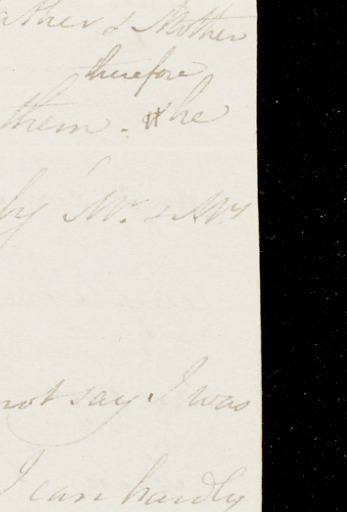 ather & Mother
therefore
them. he
by Mr. & Mrs
not say I was
I can hardly